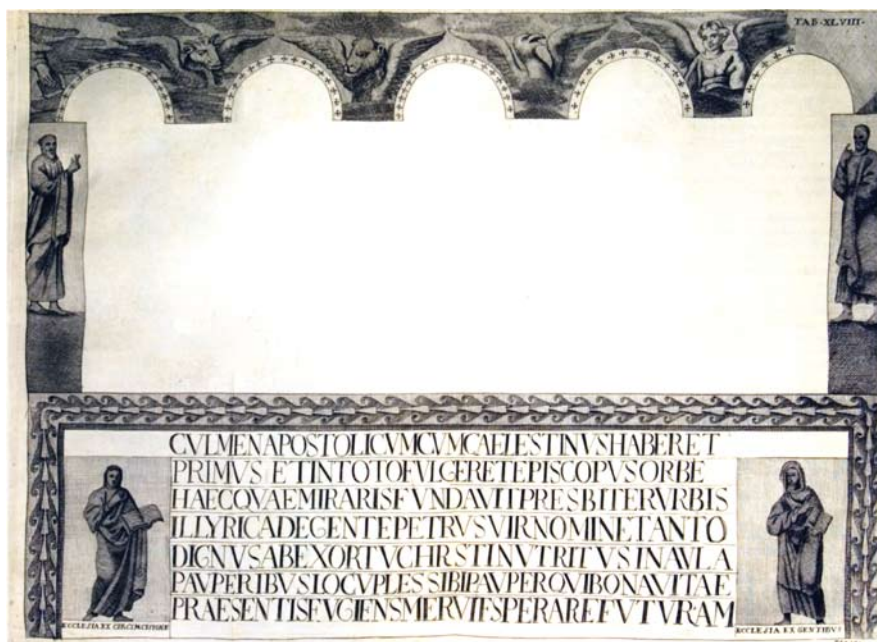 TAB·XLVIII·
CVLMENAPOSTOLICVMCVMCAELESTINVSHABERET
PRIMVS ETINTOTOFVLGERETEPISCOPVSORBE
HAECQVAEMIRARISFVNDAVITPRESBITERVRBIS
ILLYRICADEGENTEPETRVSVIRNOMINETANTO
DIGNVSABEXORTVCHRSTINVTRITVSINAVLA
PAVPERIBVSLOCVPLESSIBIPAVPERQVIBONAVITAE
PRAESENTISFVGIENSMERVITSPERAREFVTVRAM
ECCLESIA EX CIRCVMCISIONE
ECCLESIA EX GENTIBVS